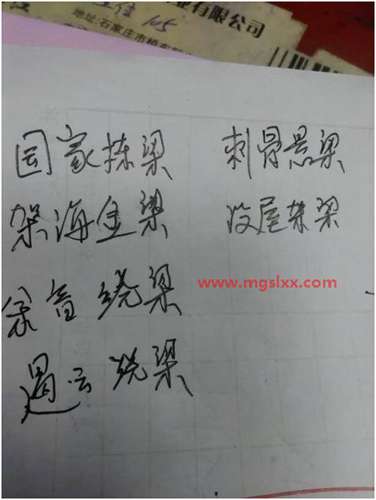 有限公司
地址:石家庄市桥东
国家栋梁 刺骨悬梁
架海金梁 没屋架梁
余音绕梁
www.mgslxx.com
遏云绕梁